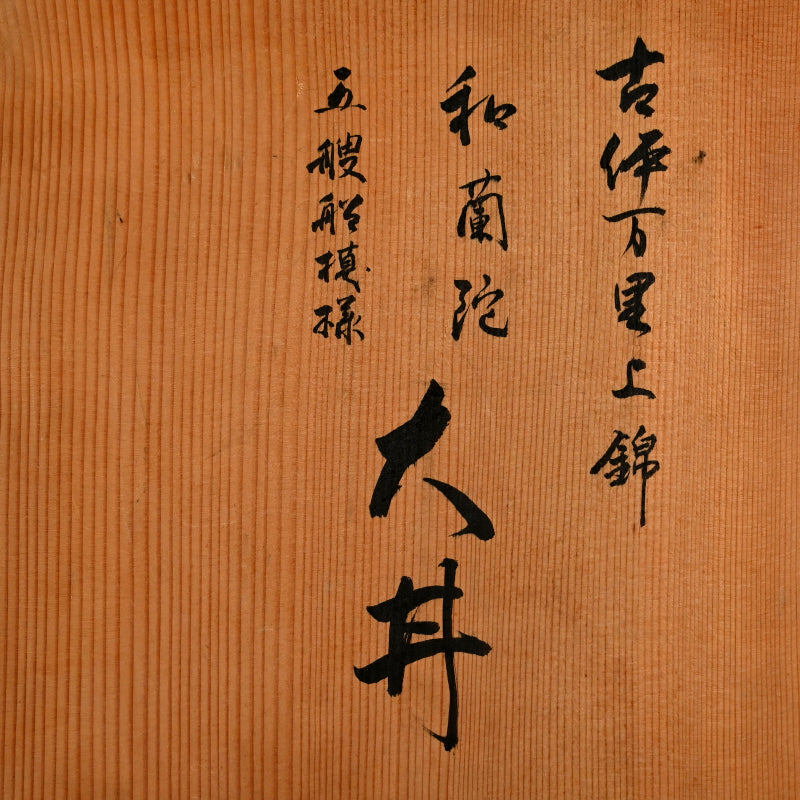 古伊万里上錦
和蘭陀
五艘船模様
大丼